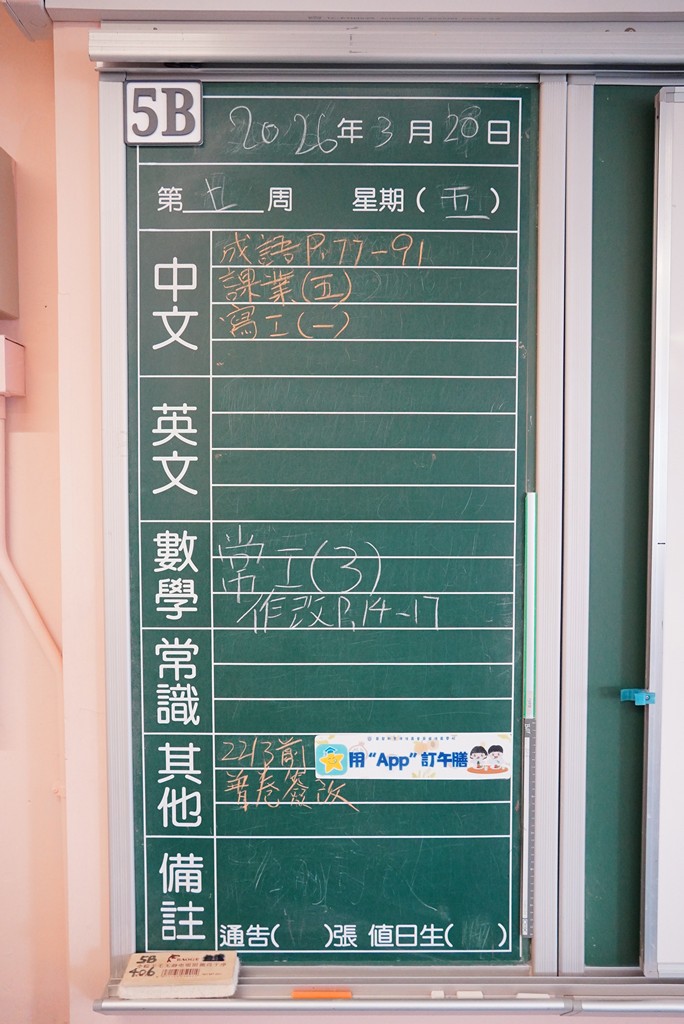 5B
2026年3月20日
第七周 星期(五)
中文
成語P.77-91
課業(五)
寫工(一)
英文
數學
常工(3)
作改P.14-17
常識
其他
22/3前
普卷簽改
用“App”訂午膳
備註
通告( )張 值日生( )
5B
406